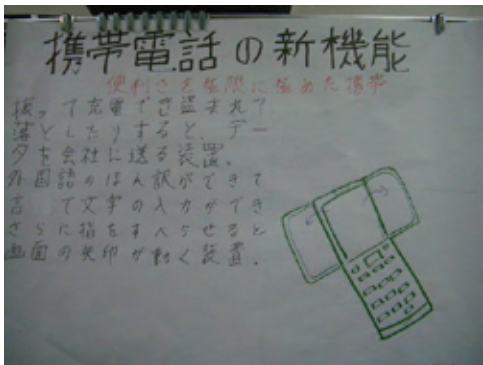 携帯電話の新機能
便利さを極限に極めた携帯
振って充電でき盗まれて
落としたりすると、デー
タを会社に送る装置。
外国語のほん訳ができて
言 て文字の入力ができ
さらに指をすべらせると
画面の矢印が動く装置。